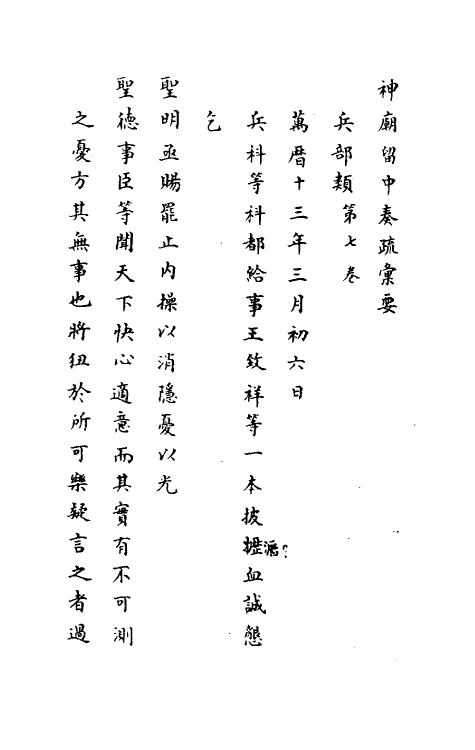 神廟留中奏疏彙要
兵部類第七卷
萬曆十三年三月初六日
兵科等科都給事王致祥等一本披瀝血誠懇
乞
聖明亟賜罷止內操以消隱憂以光
聖德事臣等聞天下快心適意而其實有不可測
之憂方其無事也將狃於所可樂疑言之者過